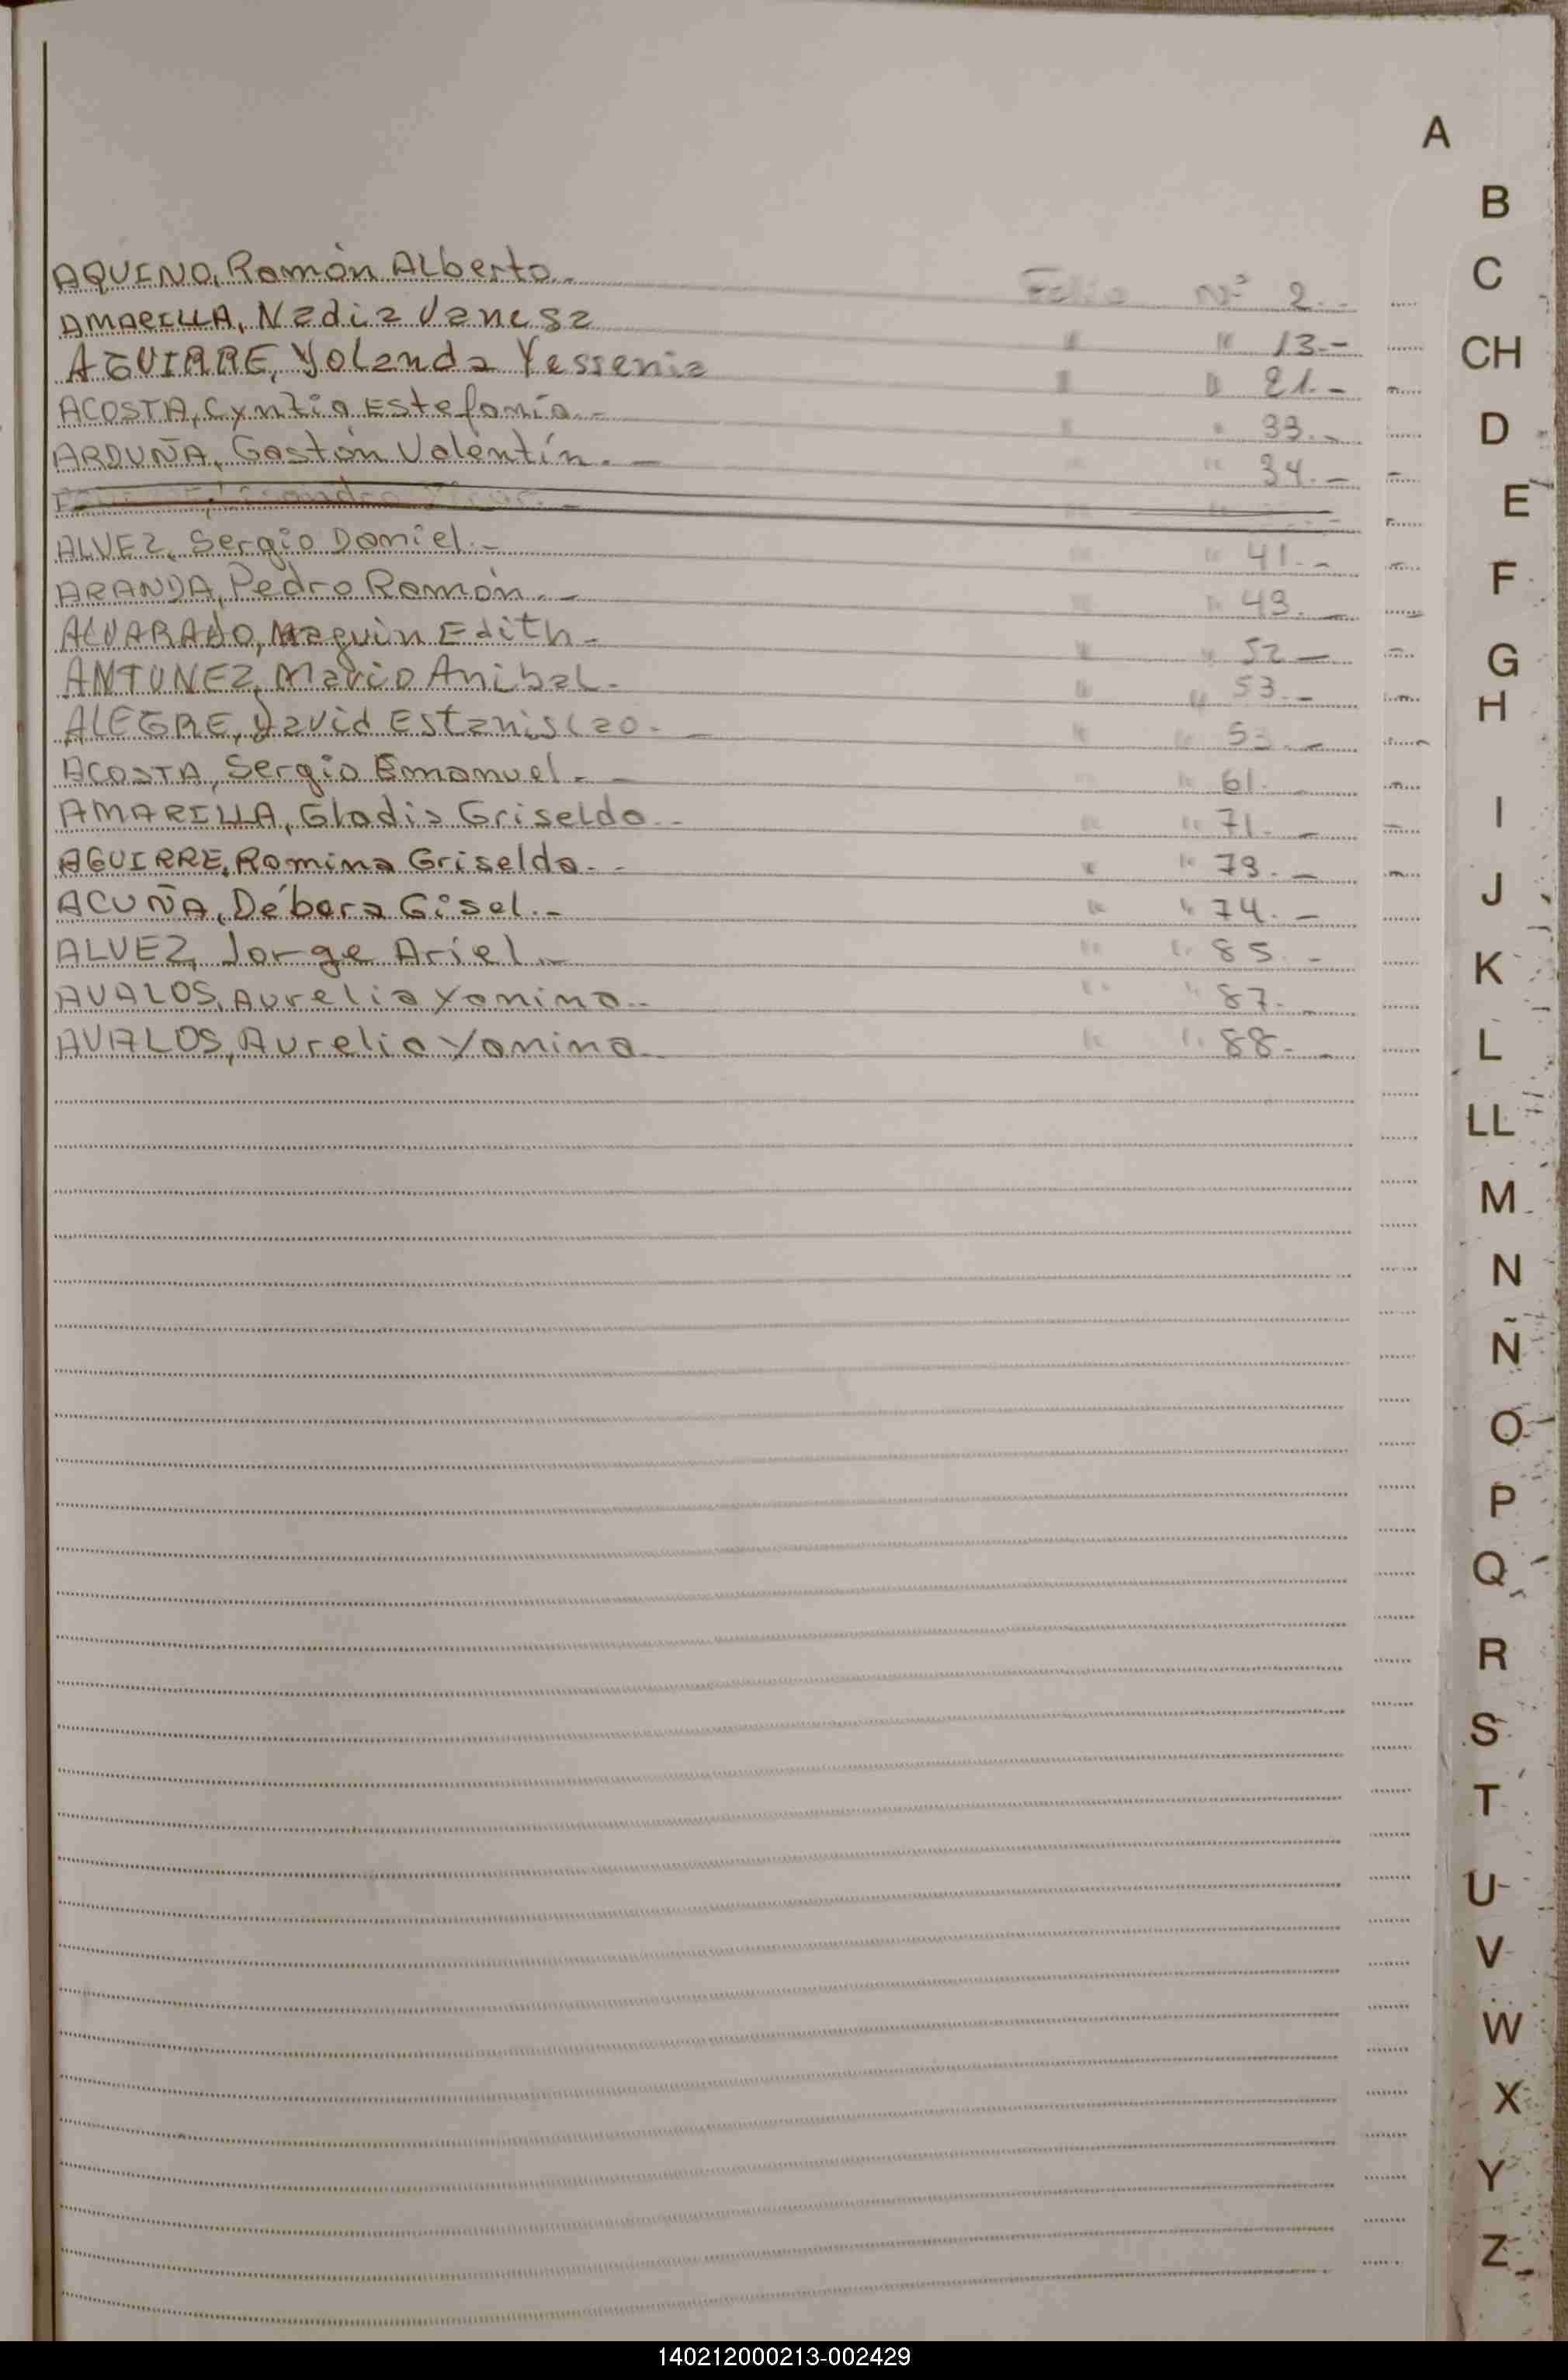 A
B
C
AQUINO, Ramón Alberto.- Folio Nº 2.-
AMARILLA, Nadia Vanesa " " 13.-
CH
AGUIRRE, Yolanda Yessenia " " 21.-
ACOSTA, Cyntia Estefanía.- " " 33.-
D
ARDUÑA, Gastón Valentín.- " " 34.-
E
ALVEZ, Sergio Daniel.- " " 41.-
F
ARANDA, Pedro Ramón.- " " 43.-
ALVARADO, Edith- " " 52-
G
ANTUNEZ, Mario Anibal- " " 53.-
H
ALEGRE, David Estanislao.- " " 53.-
ACOSTA, Sergio Emanuel.- " " 61.-
I
AMARILLA, Gladis Griselda.- " " 71.-
AGUIRRE, Romina Griselda.- " " 73.-
J
ACUÑA, Débora Gisel.- " " 74.-
ALVEZ, Jorge Ariel.- " " 85.-
K
AVALOS, Aurelia Yanina.- " " 87.-
AVALOS, Aurelia Yanina.- " " 88.-
L
LL
M
N
Ñ
O
P
Q
R
S
T
U
V
W
X
Y
Z
140212000213-002429